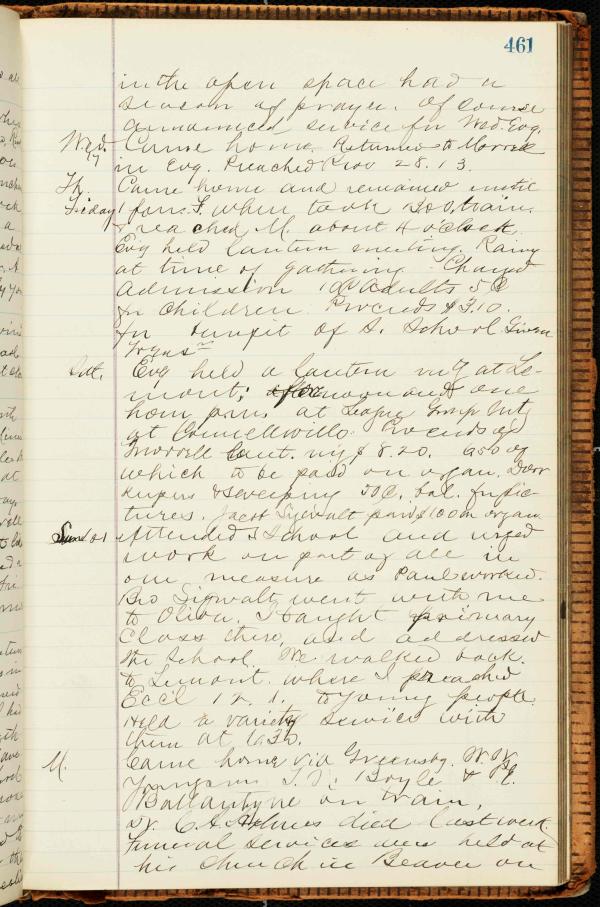 461
in the open space had a
season of prayer. Of course
announced service for Wed. Evg.
Wed. Came home. Returned to Morrell
17 in Evg. Preached Prov 28. 13.
Th. Came home and remained until
Friday 1 for when took train
& reached M. about 4 oclock.
Evg held lantern meeting. Rainy
at time of gathering. Charged
admission 10¢ adults 5¢
for children. Proceeds $3.10.
for benefit of S. School Given
Sat. Evg held a lantern mtg at Le-
mont; afternoon and one
hour p.m. at League Group Mtg
at Connellsville. Proceeds of
Morrell Lant. mtg $8.20. of
which to be paid on organ. Door
keepers & sweeping 50¢. bal. for pic-
tures. Jacob Sigwalt paid $1.00 on organ.
Sun 21 Attended S School and urged
work on part of all in
our measure as Paul worked.
Bro Sigwalt went with me
to Oliver. I taught primary
Class there, and addressed
the School. We walked back
to Lemont where I preached
Eccl 12. 1. to young people
Held a variety service with
them at
M. Came home via Greensbg. W. W.
Youngson, T. N. Boyle & H.
Ballantyne on train.
Dr. C. A. Holmes died last week.
Funeral services were held at
his church in Beaver on